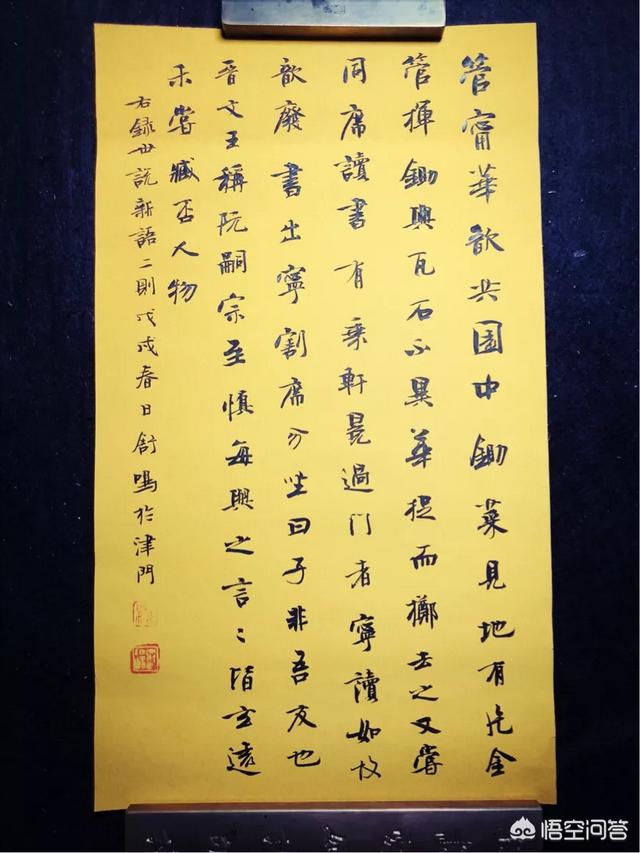 管甯華歆共園中鋤菜見地有片金
管揮鋤與瓦石不異華捉而擲去之又嘗
同席讀書有乘軒冕過門者寧讀如故
歆廢書出寧割席分坐曰子非吾友也
晉文王稱阮嗣宗至慎每與之言〻皆玄遠
未嘗臧否人物
右録世說新語二則戊戌春日舒鳴於津門
悟空问答